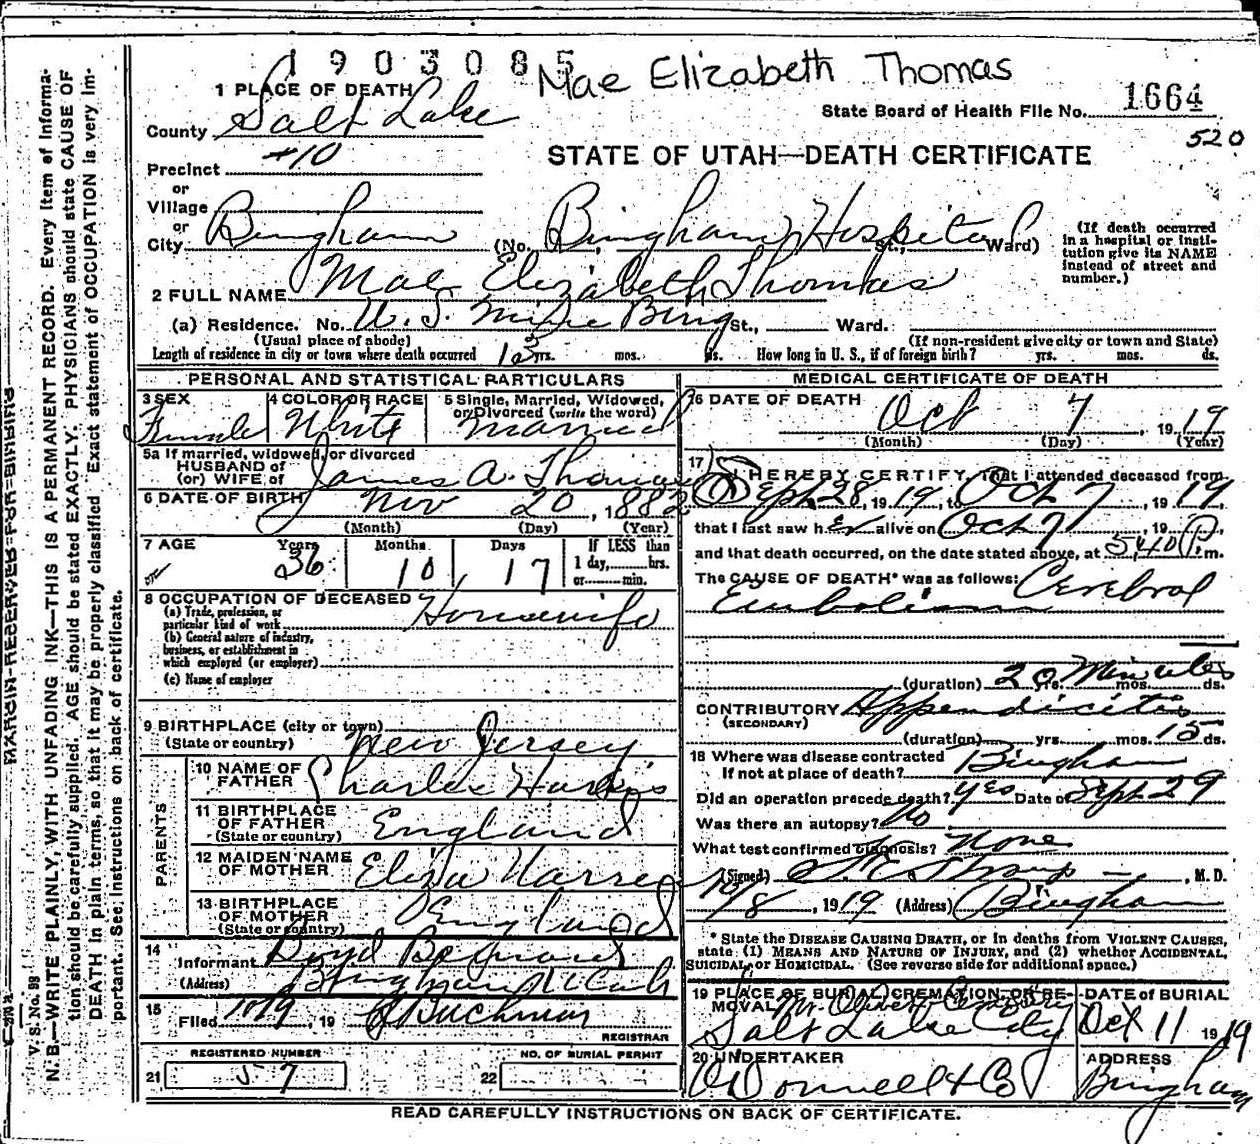 1903085
Mae Elizabeth Thomas
1 PLACE OF DEATH
State Board of Health File No. 1664
County Salt Lake
520
Precinct #10
STATE OF UTAH—DEATH CERTIFICATE
or
Village
or
City Bingham (No. Bingham Hospital St., Ward)
(If death occurred in a hospital or insti-
tution give its NAME
instead of street and
number.)
2 FULL NAME Mae Elizabeth Thomas
(a) Residence. No. U. S. Mine Bing St., Ward.
(Usual place of abode) (If non-resident give city or town and State)
Length of residence in city or town where death occurred yrs. mos. ds. How long in U. S., if of foreign birth? yrs. mos. ds.
PERSONAL AND STATISTICAL PARTICULARS
3 SEX Female
4 COLOR OR RACE White
5 Single, Married, Widowed,
or Divorced (write the word)
Married
5a If married, widowed, or divorced
HUSBAND of
(or) WIFE of James A. Thomas
6 DATE OF BIRTH Nov 20, 1882
(Month) (Day) (Year)
7 AGE Years 36 Months 10 Days 17
If LESS than
1 day, hrs.
or min.
8 OCCUPATION OF DECEASED
(a) Trade, profession, or
particular kind of work Housewife
(b) General nature of industry,
business, or establishment in
which employed (or employer)
(c) Name of employer
9 BIRTHPLACE (city or town)
(State or country) New Jersey
PARENTS
10 NAME OF
FATHER Charles
11 BIRTHPLACE
OF FATHER
(State or country) England
12 MAIDEN NAME
OF MOTHER Eliza
13 BIRTHPLACE
OF MOTHER
(State or country) England
14
Informant Boyd
(Address) Bingham
15
Filed 10/9, 19 Buchman
REGISTRAR
REGISTERED NUMBER
21 57
NO. OF BURIAL PERMIT
22
MEDICAL CERTIFICATE OF DEATH
16 DATE OF DEATH
Oct 7, 1919
(Month) (Day) (Year)
17
I HEREBY CERTIFY, That I attended deceased from
Sept 28, 1919, to Oct 7, 1919
that I last saw her alive on Oct 7, 19
and that death occurred, on the date stated above, at 540 P. m.
The CAUSE OF DEATH* was as follows: Cerebral
Embolism
(duration) 20 yrs. Minutes mos. ds.
CONTRIBUTORY Appendicitis
(SECONDARY)
(duration) yrs. mos. 15 ds.
18 Where was disease contracted
If not at place of death? Bingham
Did an operation precede death? Yes Date of Sept 29
Was there an autopsy? No
What test confirmed diagnosis? None
(Signed) , M. D.
10/8, 1919 (Address) Bingham
* State the DISEASE CAUSING DEATH, or in deaths from VIOLENT CAUSES,
state (1) MEANS AND NATURE OF INJURY, and (2) whether ACCIDENTAL,
SUICIDAL, or HOMICIDAL. (See reverse side for additional space.)
19 PLACE OF BURIAL, CREMATION, OR RE-
MOVAL Mt. Olivet Cemetery
Salt Lake City
DATE OF BURIAL
Oct 11 1919
20 UNDERTAKER
O'Donnell & Co
ADDRESS
Bingham
READ CAREFULLY INSTRUCTIONS ON BACK OF CERTIFICATE.
MARGIN RESERVED FOR BINDING
V. S. No. 99
N. B.—WRITE PLAINLY, WITH UNFADING INK—THIS IS A PERMANENT RECORD. Every item of informa-
tion should be carefully supplied. AGE should be stated EXACTLY. PHYSICIANS should state CAUSE OF
DEATH in plain terms, so that it may be properly classified. Exact statement of OCCUPATION is very im-
portant. See instructions on back of certificate.